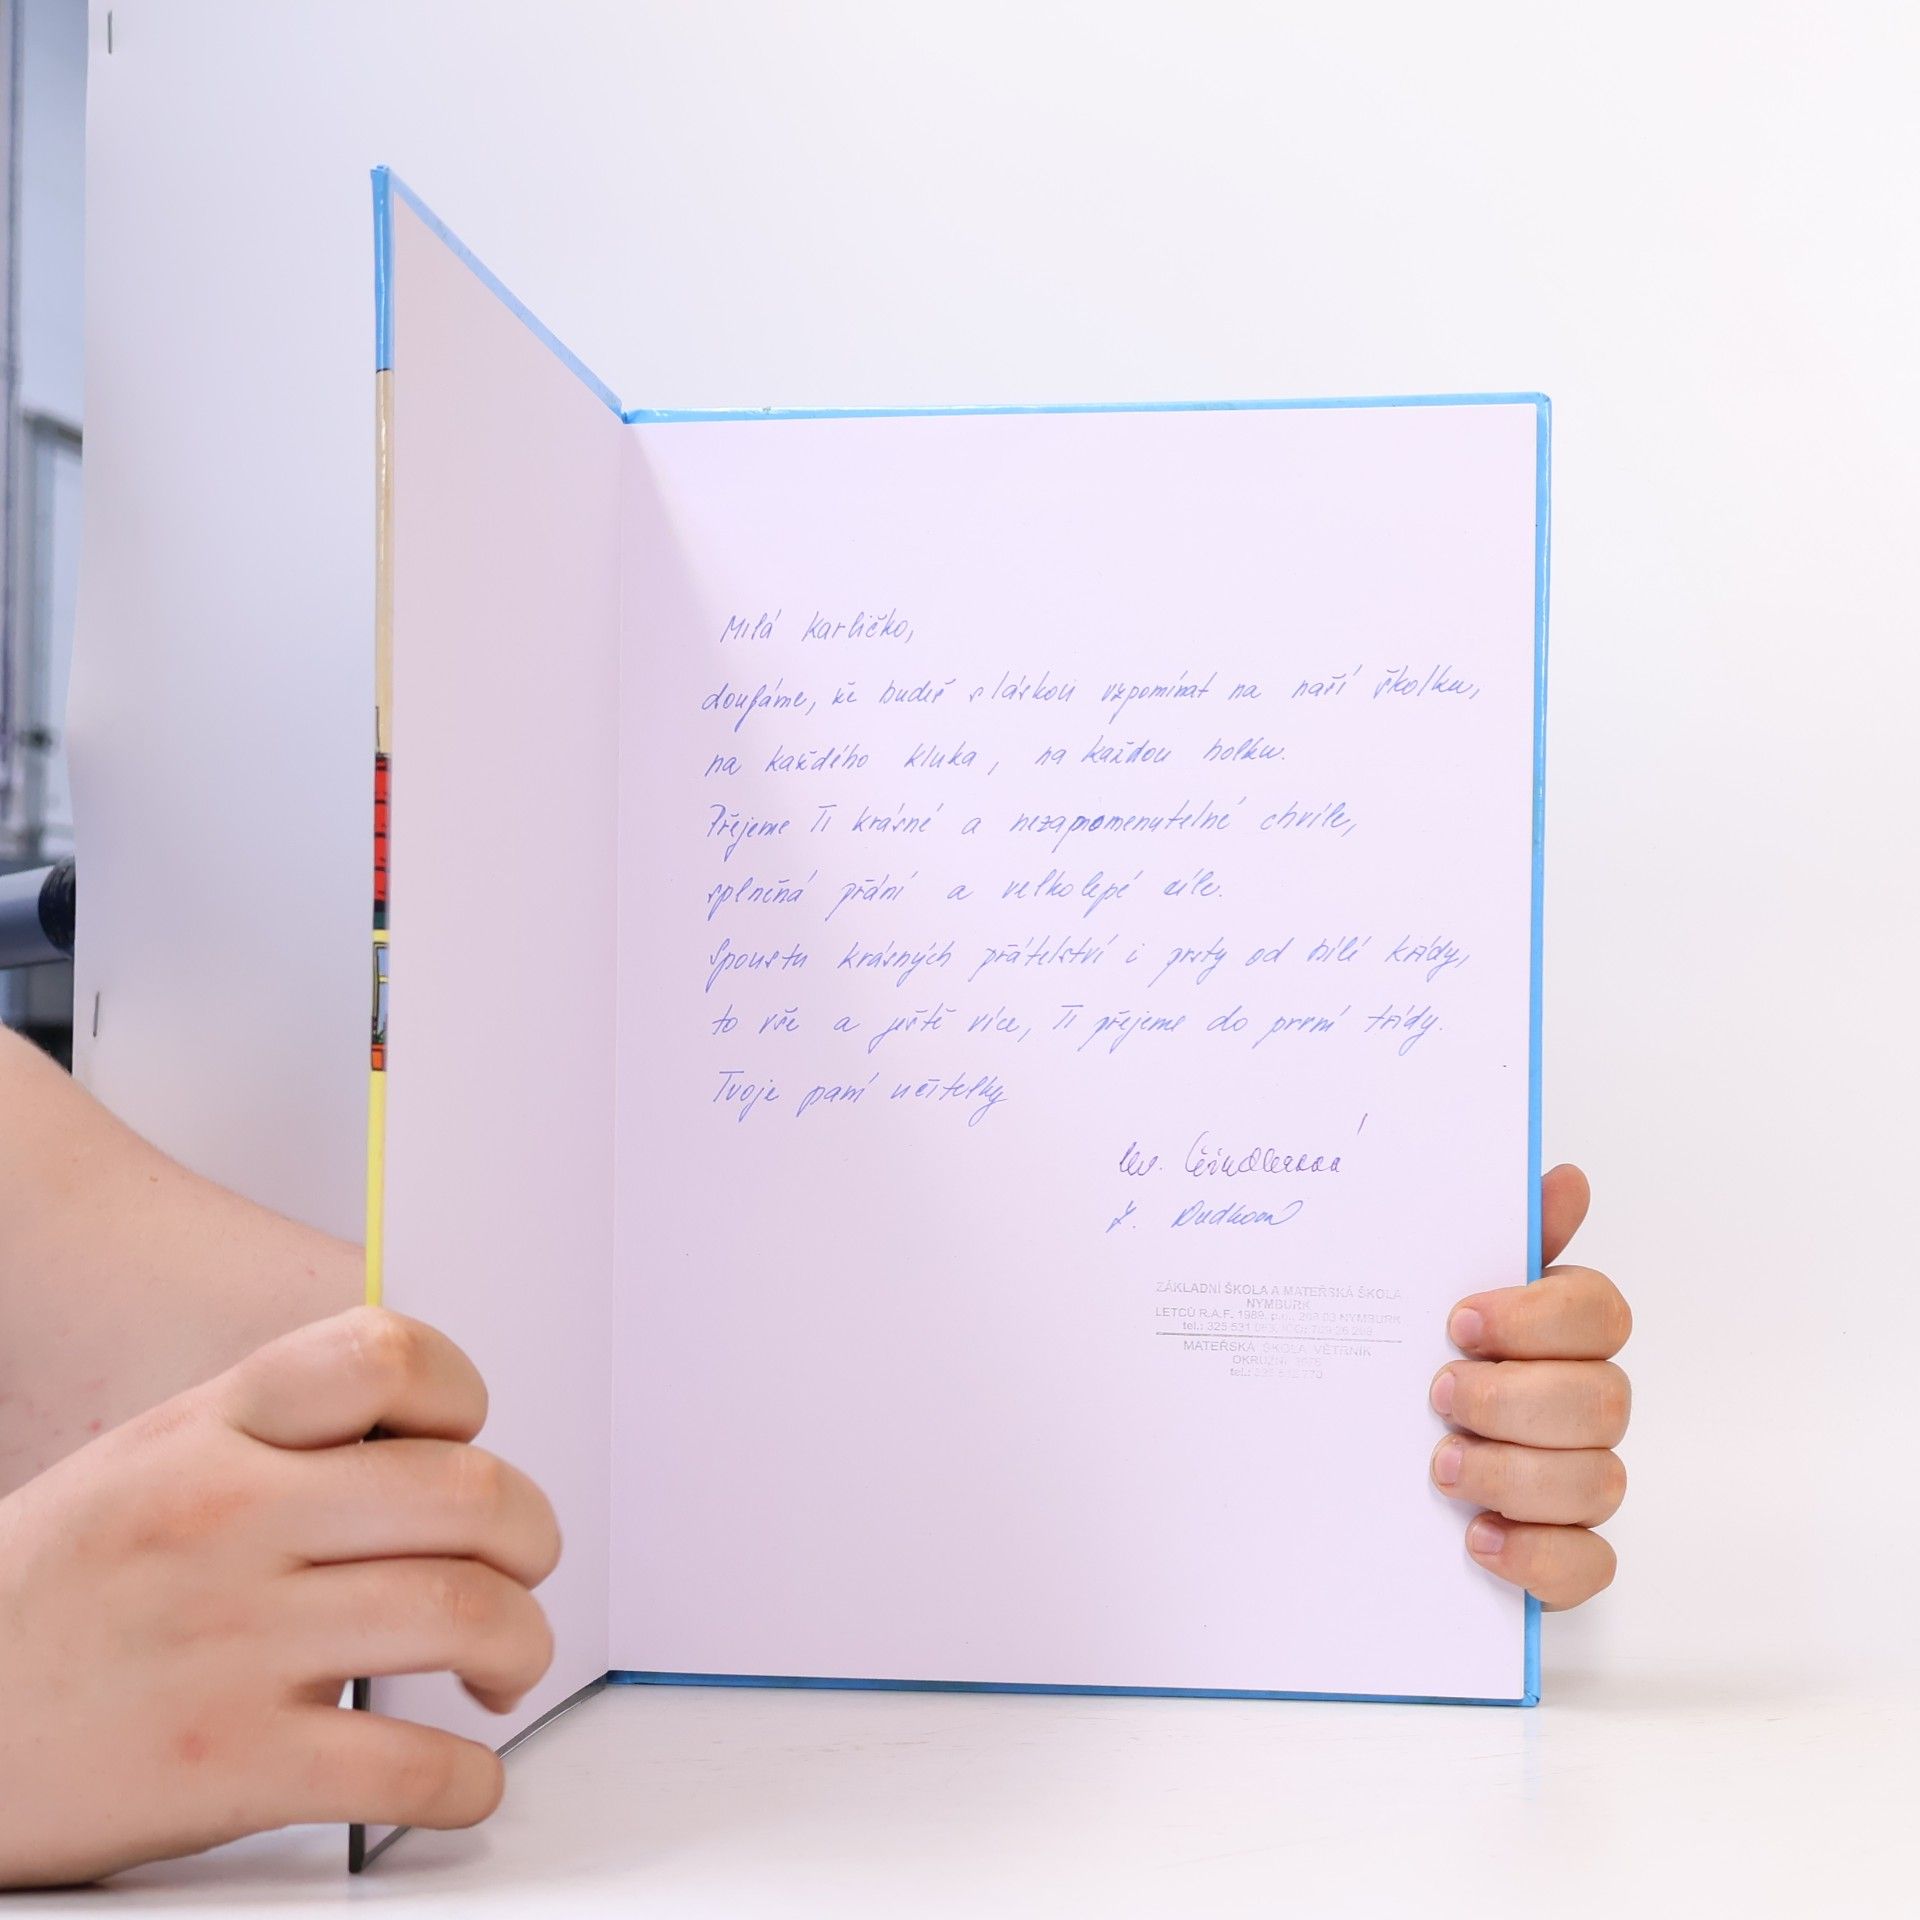 Milá Karličko,
doufáme, že budeš s láskou vzpomínat na naší školku,
na každého kluka, na každou holku.
Přejeme Ti krásné a nezapomenutelné chvíle,
splněná přání a velkolepé cíle.
Spoustu krásných přátelství i prsty od bílé křídy,
to vše a ještě více, Ti přejeme do první třídy.
Tvoje paní učitelky
ZÁKLADNÍ ŠKOLA A MATEŘSKÁ ŠKOLA
NYMBURK
LETCŮ R.A.F. 1989, p.o., 288 03 NYMBURK
tel.: 325 531
MATEŘSKÁ ŠKOLA VĚTRNÍK
OKRUŽNÍ
tel.: